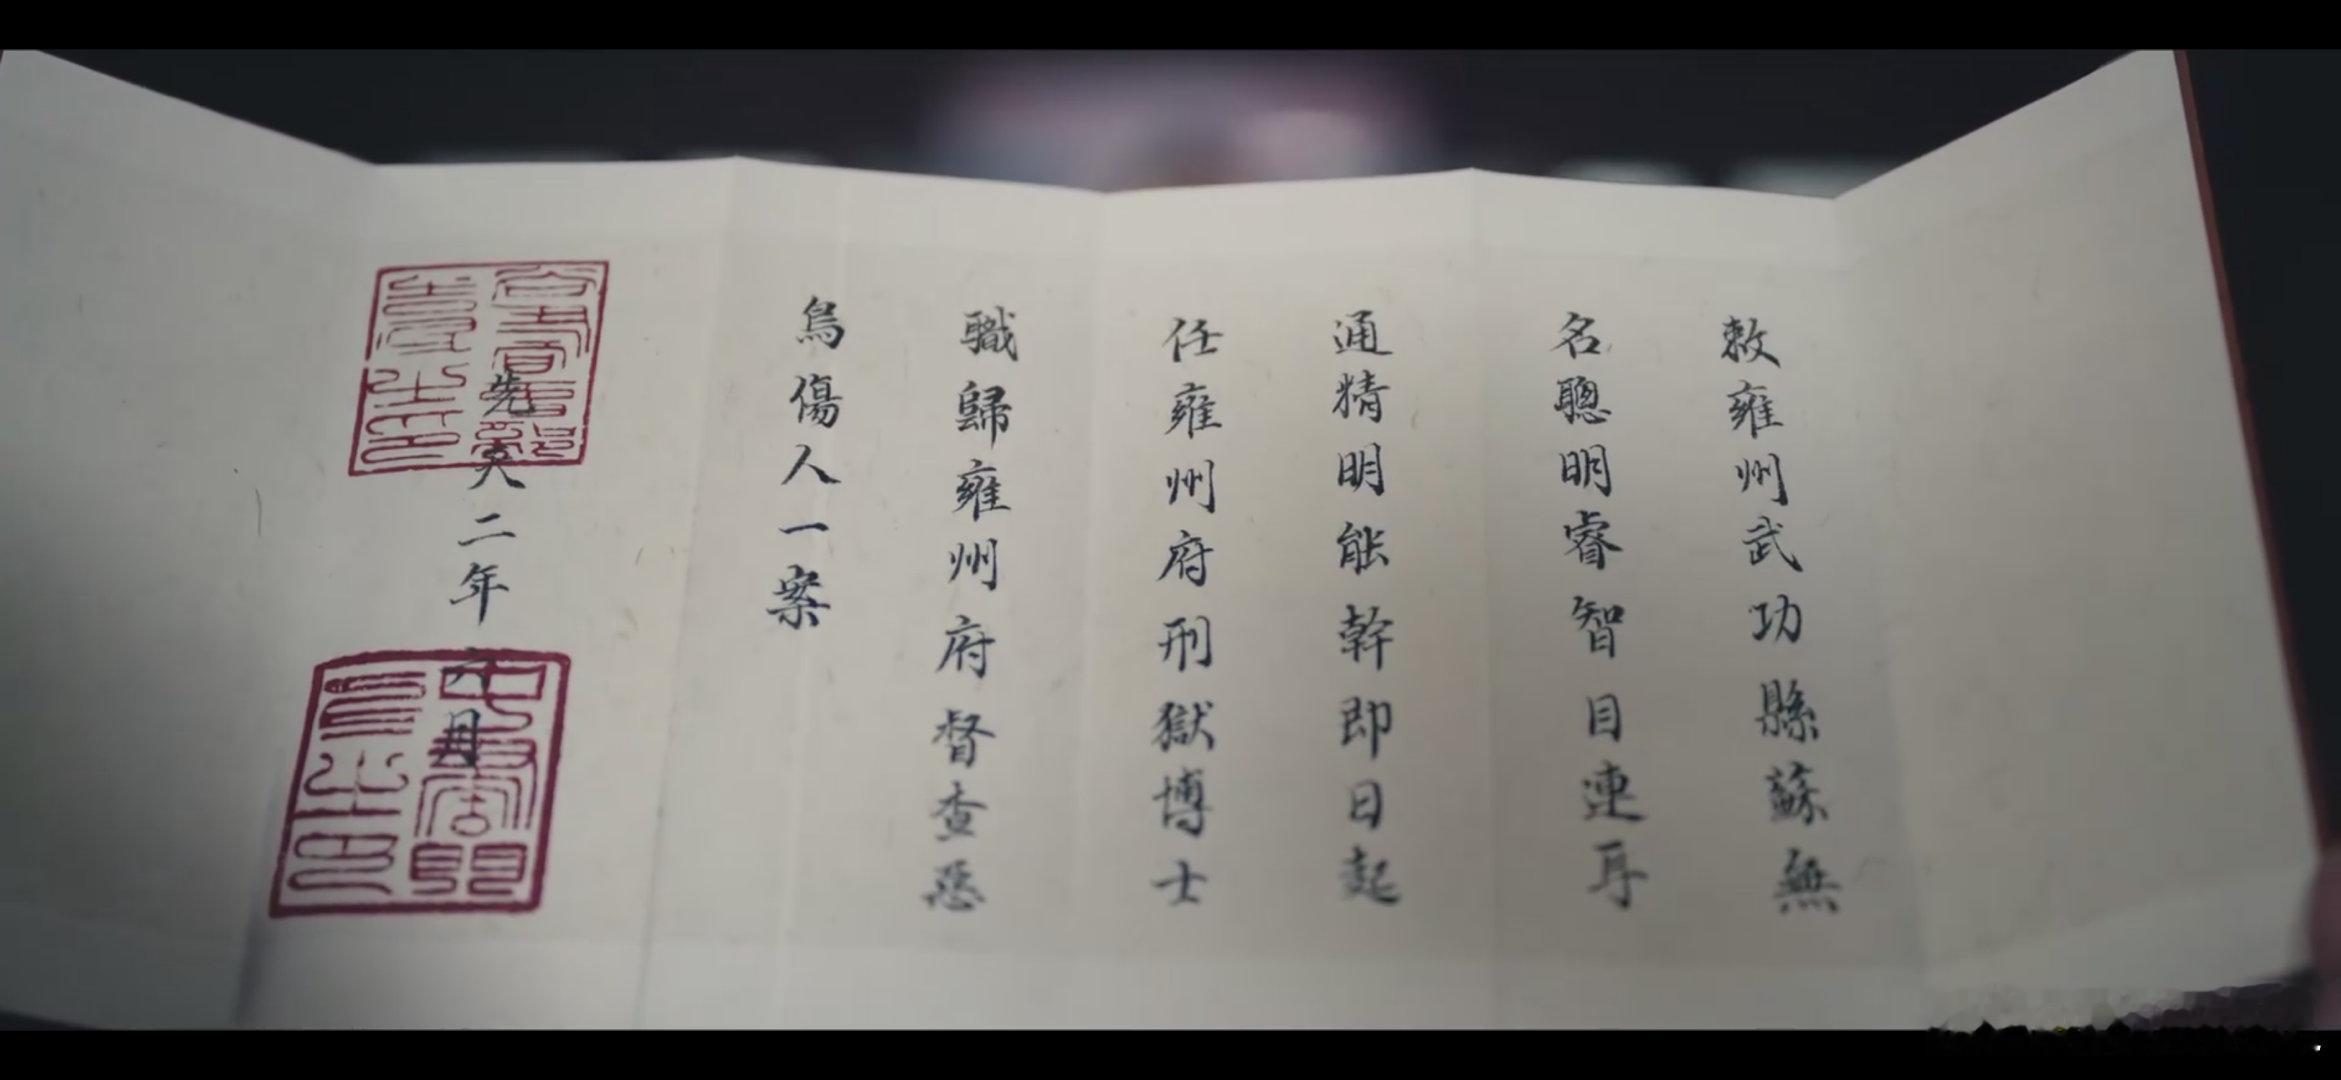 敕雍州武功縣蘇無
名聰明睿智目連耳
通精明能幹即日起
任雍州府刑獄博士
職歸雍州府督查惡
鳥傷人一案
先天二年六月